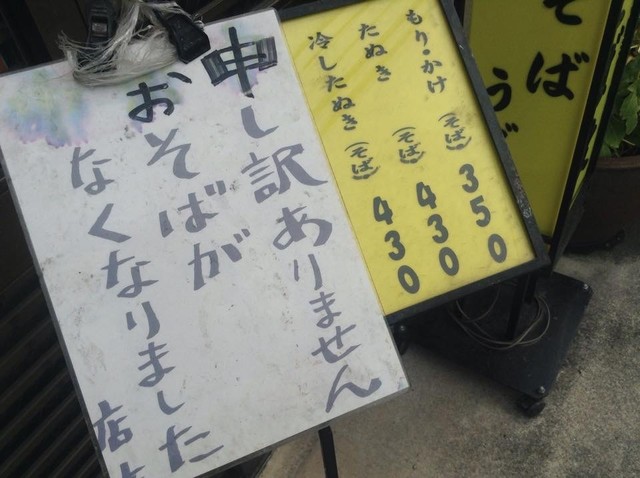 申し訳ありません
おそばが
なくなりました
店
もり・かけ(そば)350
たぬき(そば)430
冷したぬき(そば)430
そば
うど